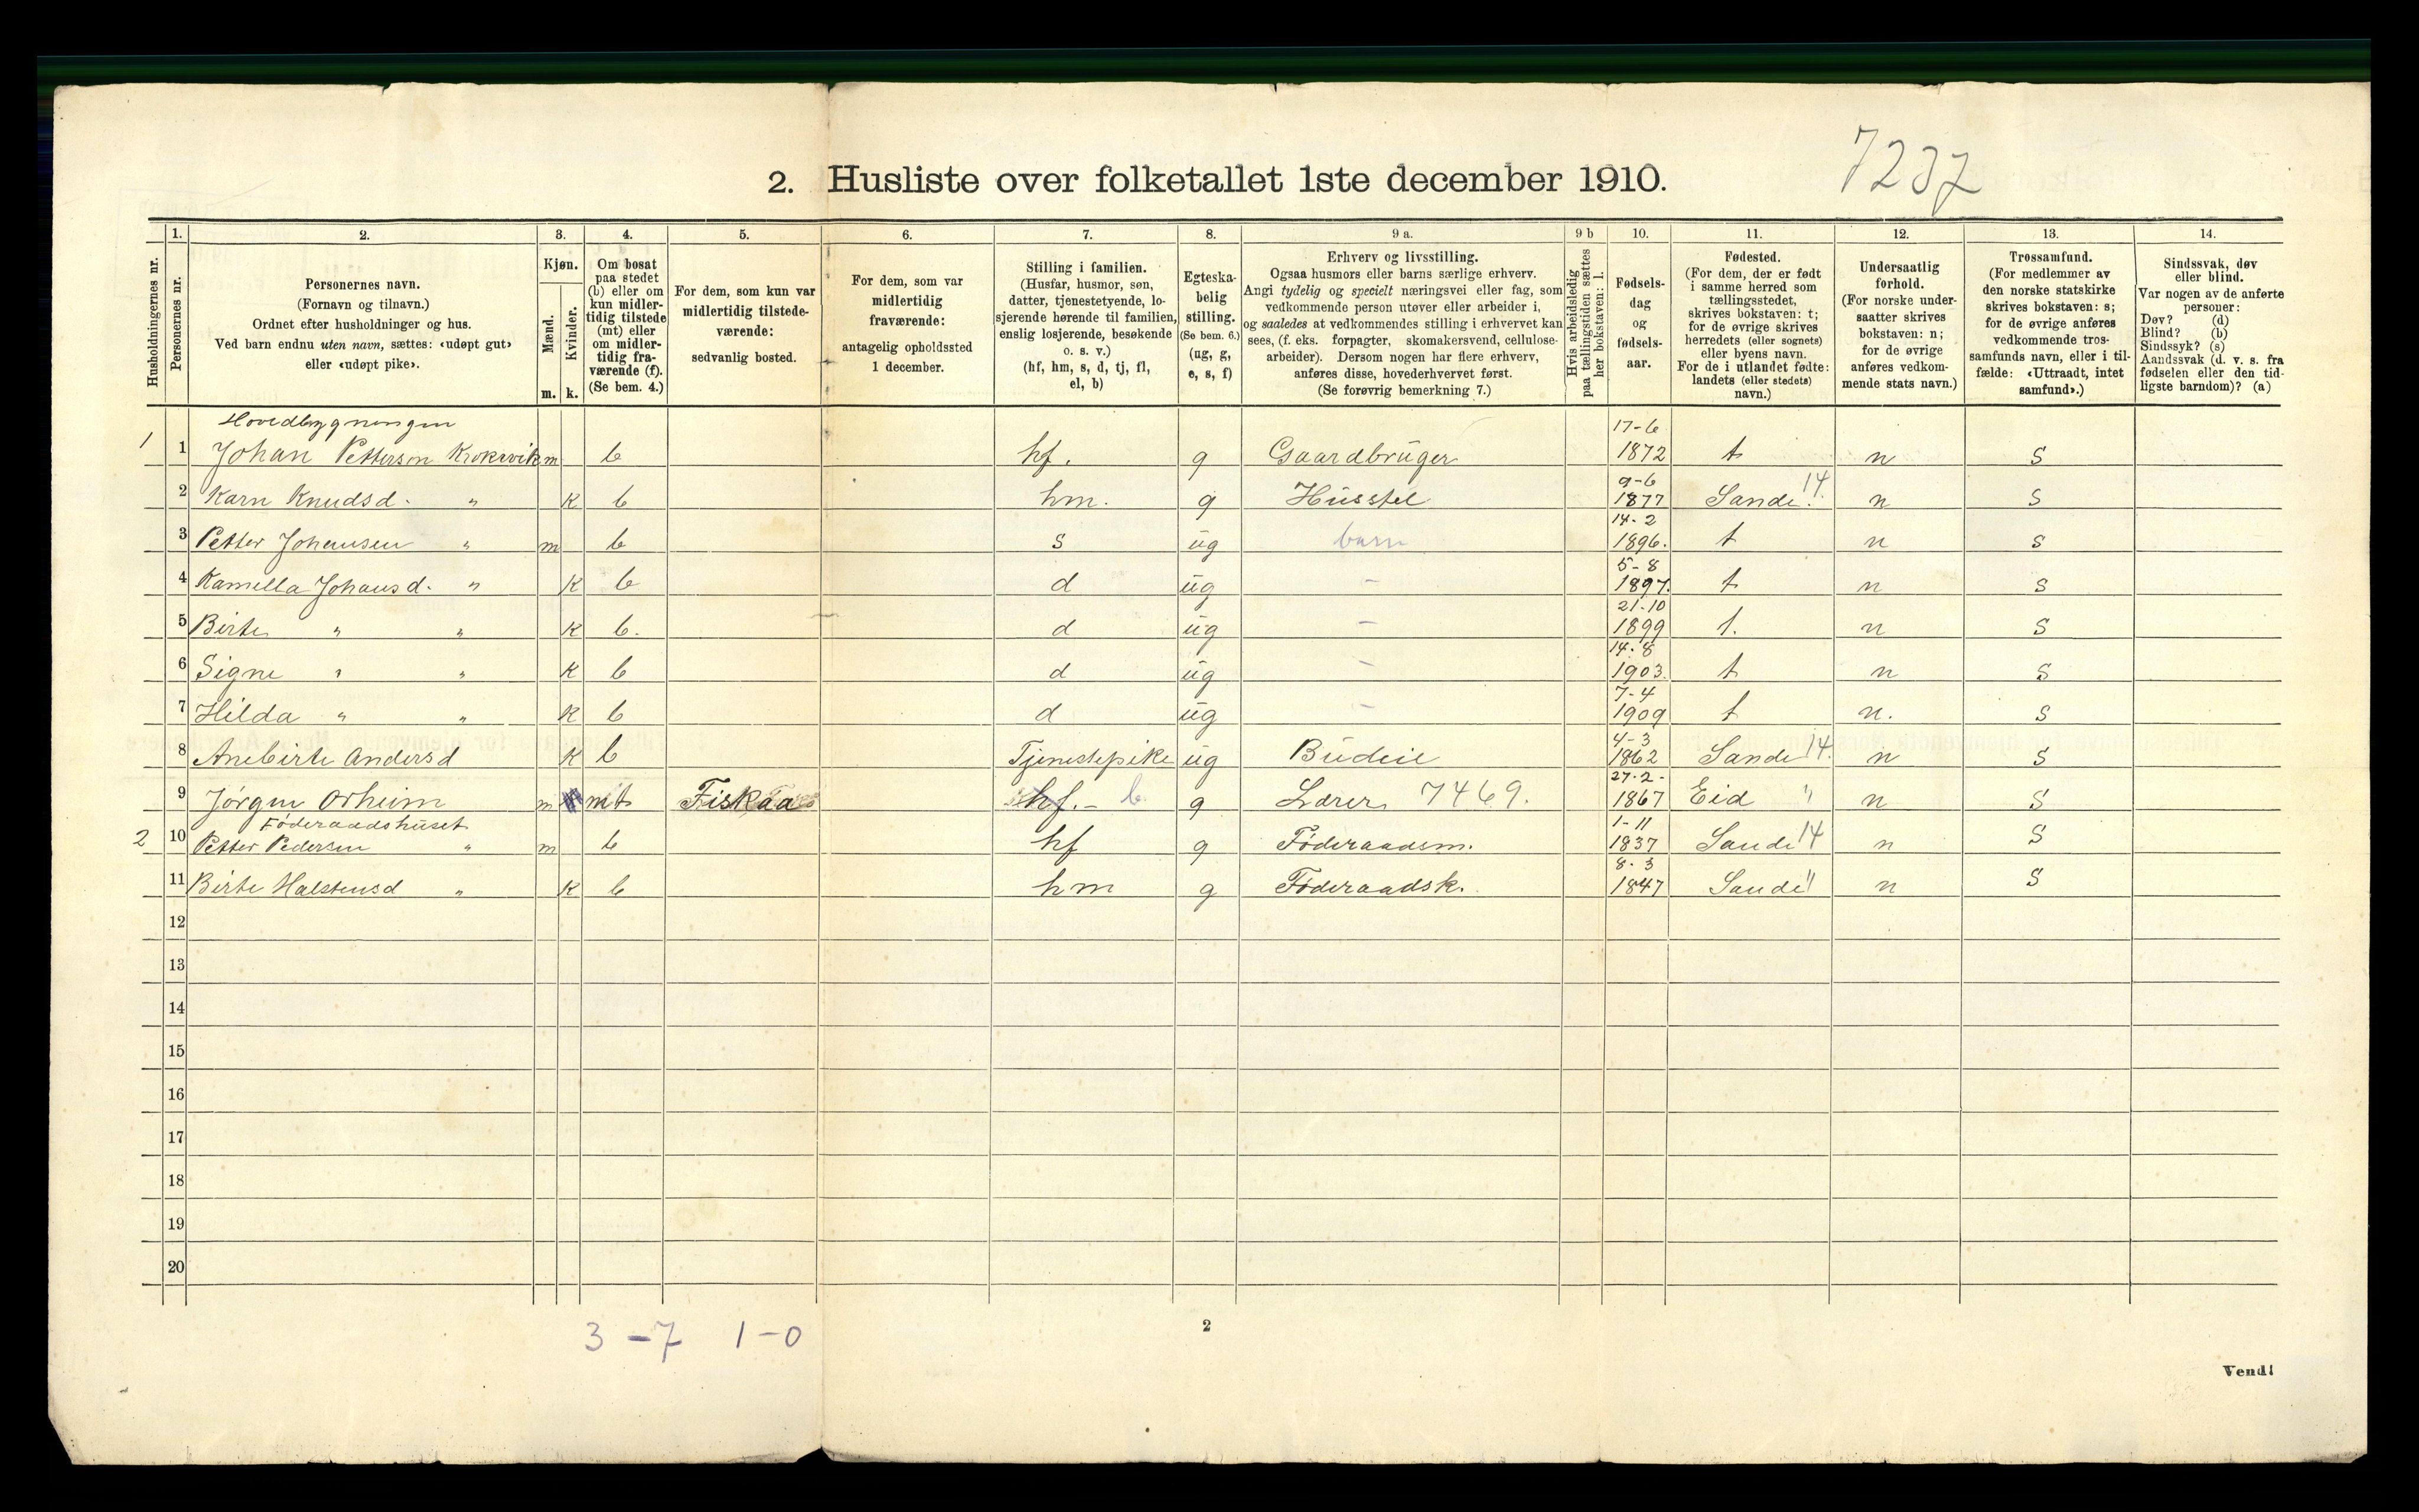 7237
2. Husliste over folketallet 1ste december 1910.
Husholdningernes nr.
1.
Personernes nr.
2.
Personernes navn.
(Fornavn og tilnavn.)
Ordnet efter husholdninger og hus.
Ved barn endnu uten navn, sættes: «udøpt gut»
eller «udøpt pike».
3.
Kjøn.
Mænd.
Kvinder.
m. k.
4.
Om bosat
paa stedet
(b) eller om
kun midler-
tidig tilstede
(mt) eller
om midler-
tidig fra-
værende (f).
(Se bem. 4.)
5.
For dem, som kun var
midlertidig tilstede-
værende:
sedvanlig bosted.
6.
For dem, som var
midlertidig
fraværende:
antagelig opholdssted
1 december.
7.
Stilling i familien.
(Husfar, husmor, søn,
datter, tjenestetyende, lo-
sjerende hørende til familien,
enslig losjerende, besøkende
o. s. v.)
(hf, hm, s, d, tj, fl,
el, b)
8.
Egteska-
belig
stilling.
(Se bem. 6.)
(ug, g,
e, s, f)
9 a.
Erhverv og livsstilling.
Ogsaa husmors eller barns særlige erhverv.
Angi tydelig og specielt næringsvei eller fag, som
vedkommende person utøver eller arbeider i,
og saaledes at vedkommendes stilling i erhvervet kan
sees, (f. eks. forpagter, skomakersvend, cellulose-
arbeider). Dersom nogen har flere erhverv,
anføres disse, hovederhvervet først.
(Se forøvrig bemerkning 7.)
9 b
Hvis arbeidsledig
paa tællingstiden sættes
her bokstaven: l.
10.
Fødsels-
dag
og
fødsels-
aar.
11.
Fødested.
(For dem, der er født
i samme herred som
tællingsstedet,
skrives bokstaven: t;
for de øvrige skrives
herredets (eller sognets)
eller byens navn.
For de i utlandet fødte:
landets (eller stedets)
navn.)
12.
Undersaatlig
forhold.
(For norske under-
saatter skrives
bokstaven: n;
for de øvrige
anføres vedkom-
mende stats navn.)
13.
Trossamfund.
(For medlemmer av
den norske statskirke
skrives bokstaven: s;
for de øvrige anføres
vedkommende tros-
samfunds navn, eller i til-
fælde: «Uttraadt, intet
samfund».)
14.
Sindssvak, døv
eller blind.
Var nogen av de anførte
personer:
Døv? (d)
Blind? (b)
Sindssyk? (s)
Aandssvak (d. v. s. fra
fødselen eller den tid-
ligste barndom)? (a)
Hovedbygningen
1 1 Johan Petterson Krokevik m b hf. g Gaardbruger 17-6 1872 t n s
2 Karn Knudsd. " k b hm. g Husstel 9-6 1877 Sande 14. n s
3 Petter Johansen " m b s ug barn 14-2 1896. t n s
4 Kamella Johansd. " k b d ug - 5-8 1897. t n s
5 Birte " " k b. d ug - 21-10 1899 t. n s
6 Signe " " k b d ug - 14-8 1903. t n s
7 Hilda " " k b d ug - 7-4 1909 t n. s
8 Anebirte Andersd k b Tjenestepike ug Budeie 4-3 1862 Sande 14. n s
9 Jørgen Orheim m mt Fiskaa hf. - b. g Lærer 7469. 27-2- 1867 Eid " n s
Føderaadshuset
2 10 Petter Pedersen " m b hf g Føderaadsm. 1-11 1837 Sande 14 n s
11 Birte Halstensd " k b hm g Føderaadsk. 8-3 1847 Sande " n s
12
13
14
15
16
17
18
19
20
3 - 7 1 - 0
2
Vend!